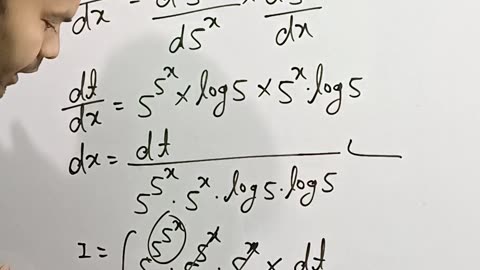 dx = d5^x × d5^x
d5^x dx
dt/dx = 5^5^x × log5 × 5^x · log5
dx = dt / 5^5^x · 5^x · log5 · log5
I = ∫ 5^5^5^x · 5^5^x · 5^x × dt